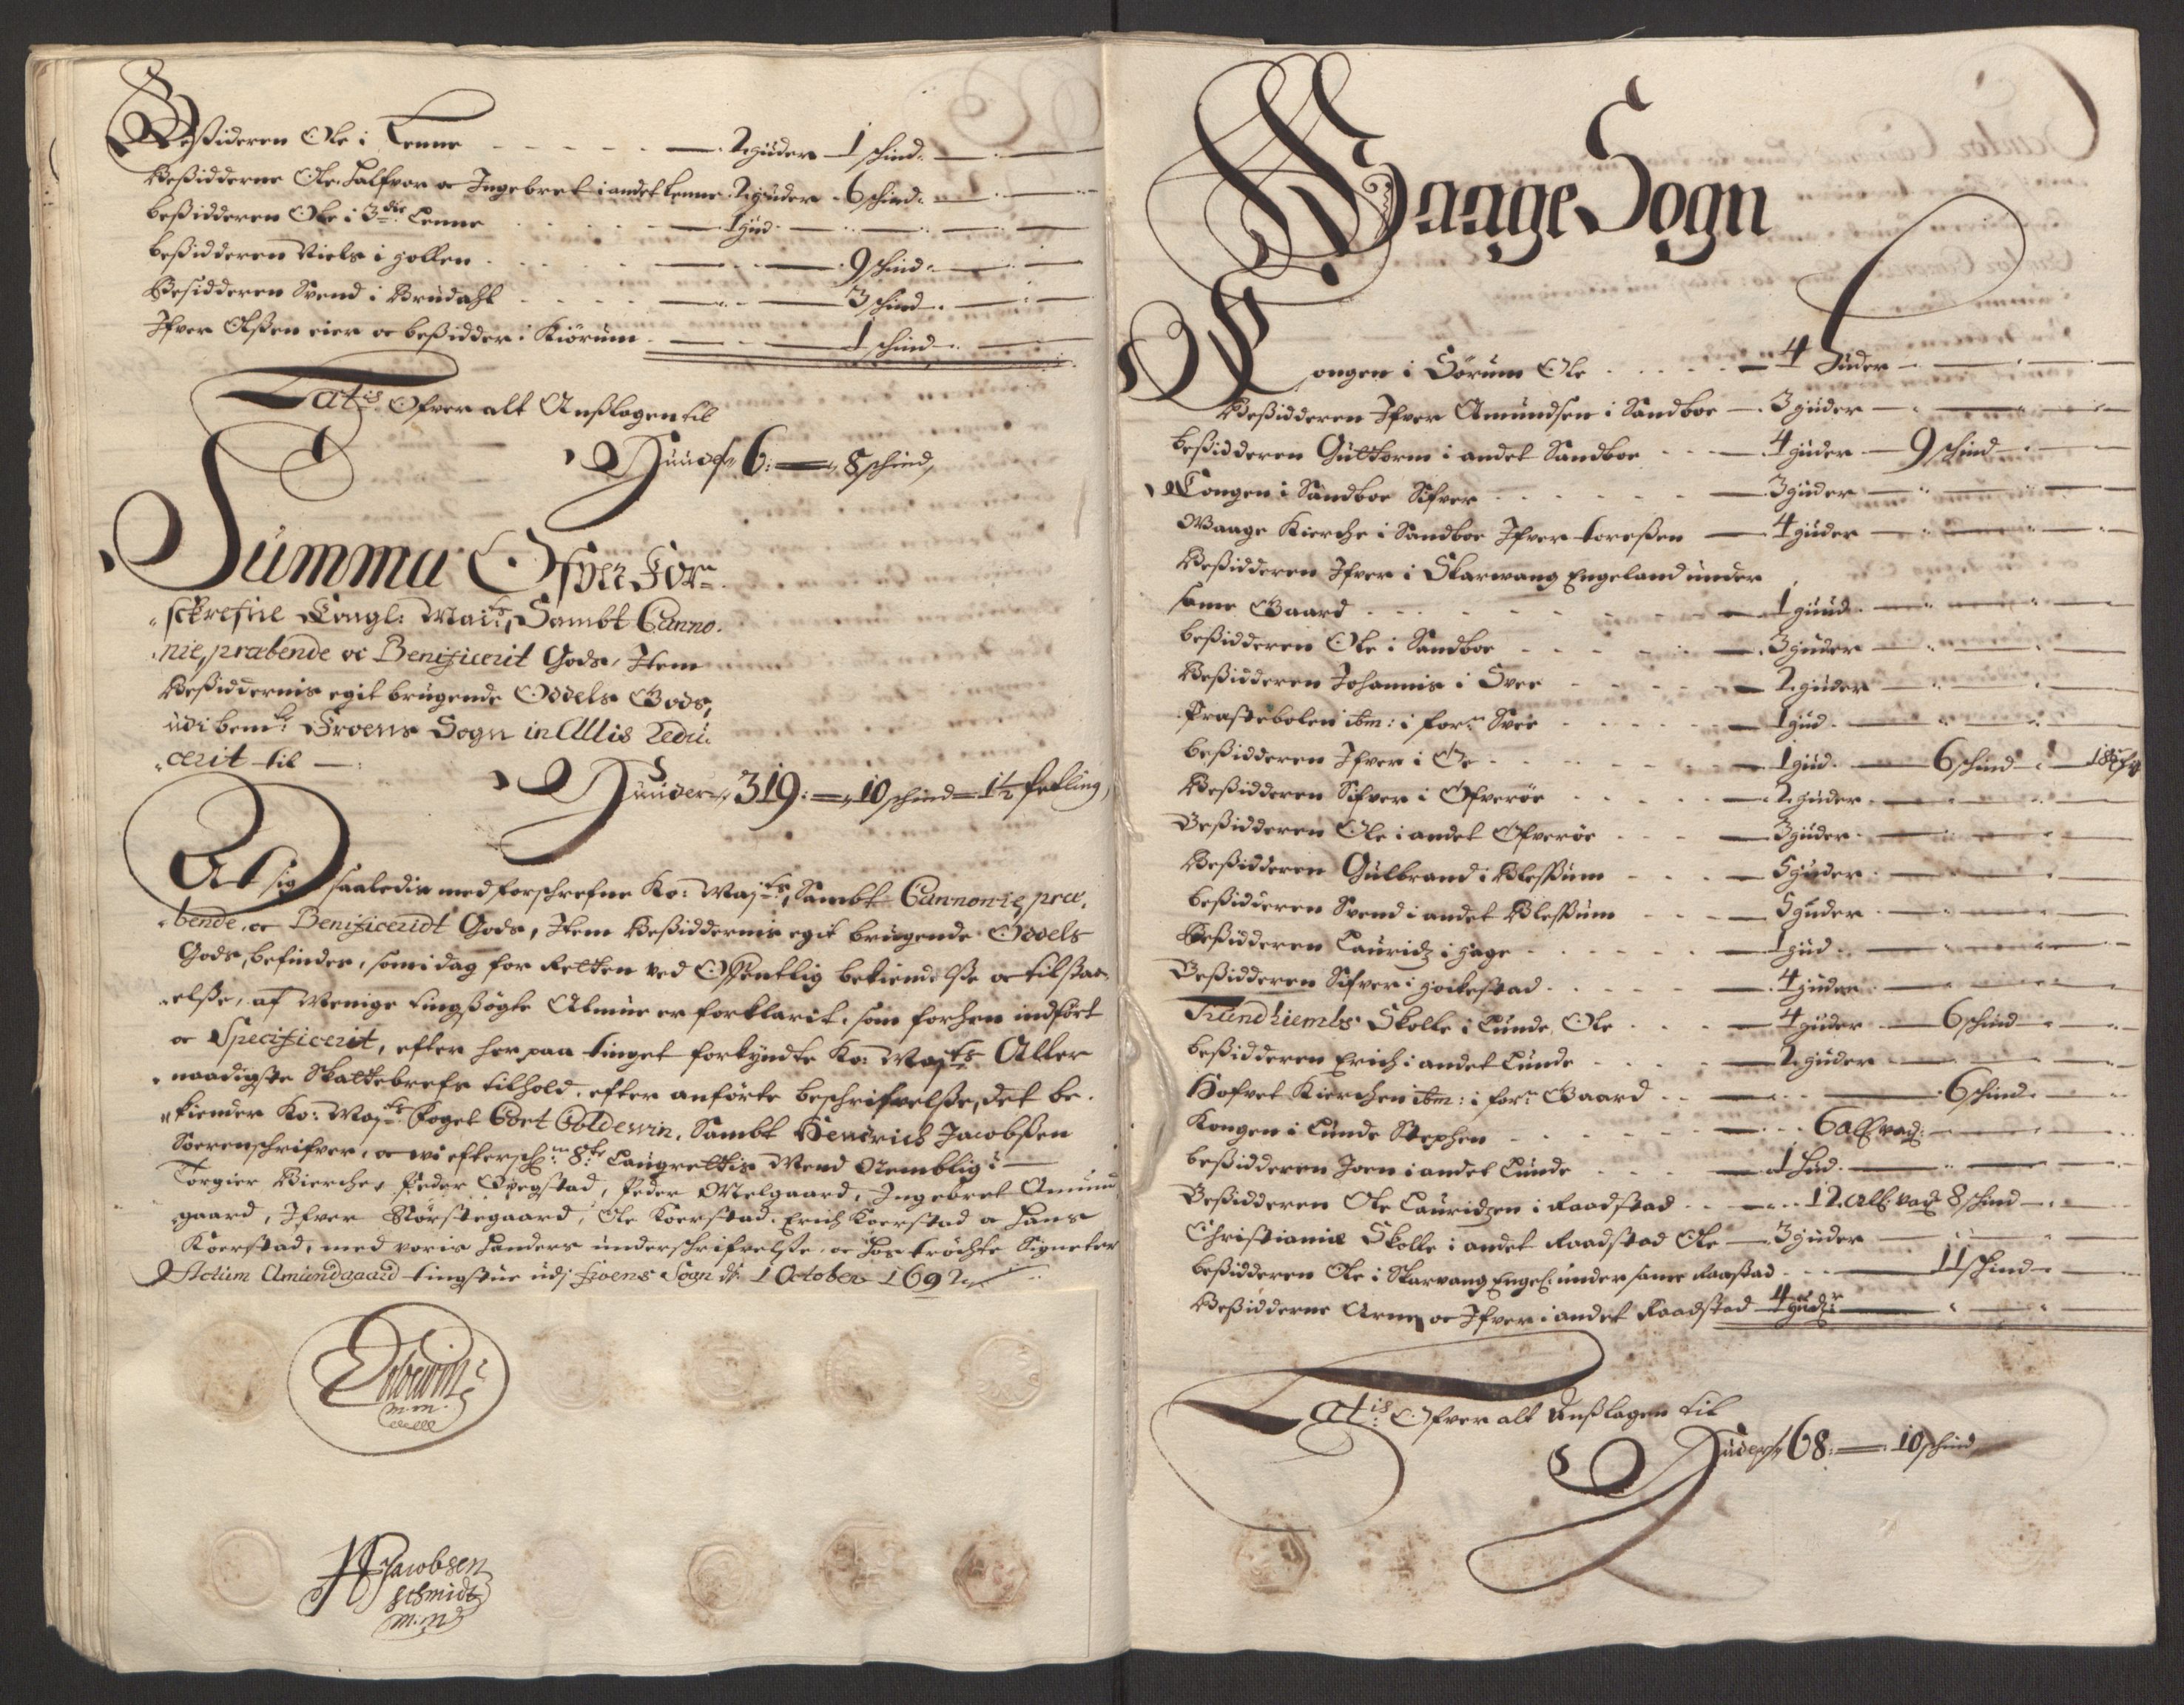 Beßideren Ole i Lenne — 2 huder 1 schind
Beßidderne Ole Halfvor oc Ingebret i andet Lenne 2 huder 6 schind
beßidderen Ole i 3die Lenne — 1 hud
beßidderen Niels i hollen — 9 schind
Besidderen Svend i Brudahl — 3 schind
Ifver Olßen eier oc beßidder i Kiörum — 1 schind
Latis Ofver alt Anßlagen til
Huude 6: — 8 schind
Summa Ofver For:
schrefne Kongl: Maits, Sambt Canno-
nie, præbende oc Benificerit Gods, Item
Beßiddernis egit brugende Oddels Gods,
udi bemte Froens Sogn in Allis Redu-
cerit til —
Huuder 319: — 10 schind — 1½ fetling
At sig saaledis med forschrefne Ko: Majts, Sambt Cannonie, præ-
bende, oc Benificeridt Gods, Item Beßiddernis egit brugende Oddels
Gods, befindes, som i dag for Retten ved Offentlig bekiendelße oc tilstaa-
elße, af Menige tingsögte Almue er forklarit, som forhen indfört
oc Specificerit, efter her paa tinget forkyndte Ko: Majts Aller
naadigste Skattebrefs tilhold, efter anförte beschrifvelße, det be-
kiender Ko: Majts Foget Cort Coldewin, Sambt Hendrich Jacobßen
Sorenschrifver, oc wi efterschne 8te Laugrettis Mend Nemblig:
Torgier Bierche, Peder Opegstad, Peder Melgaard, Ingebret Amund
gaard, Ifver Störstegaard, Ole Korstad, Erich Korstad oc Hans
Korstad, med voris Hænders underschrifvelße, oc hoströchte Signeter
Actum Amundgaard tingstue udj froens Sogn d: 1 October 1692
Coldewin
m.m.
HJacobsen
Schmidt
m.m
Waage Sogn
Kongen i Sörum Ole — 4 Huder
Beßidderen Ifver Amundsen i Sandboe — 3 huder
beßidderen Gulttorm i andet Sandboe — 4 huder — 9 schind
Kongen i Sandboe Sifver — 3 huder
Waage Kierche i Sandboe Ifver toresßen — 4 huder
Beßidderen Ifver i Skarwang Engeland under
same Gaard — 1 huud
beßidderen Ole i Sandboe — 3 huder
Beßidderen Johannis i Svee — 2 huder
Præstebolen ibm: i forne Svee — 1 hud
beßidderen Ifver i Öe — 1 hud — 6 schind — 18
Beßidderen Sifver i Öfveröe — 2 huder
Beßidderen Ole i andet Öfveröe — 3 huder
Beßidderen Gulbrand i Bleßum — 5 huder
beßidderen Svend i andet Bleßum — 5 huder
Beßidderen Lauridz i hage — 1 hud
Beßidderen Sifver i hokestad — 4 huder
Trundhiembs Skolle i Lunde, Ole — 4 huder — 6 schind
beßidderen Erich i andet Lunde — 2 huder
Hofvet Kierchen ibm: i forne Gaard — 6 schind
Kongen i Lunde Stephen — 6 alf vad:
beßidderen Joen i andet Lunde — 1 Hud
Beßidderen Ole Lauridzen i Raadstad — 12 alf vad 8 schind
Christianiæ Skolle i andet Raadstad Ole — 3 huder
beßidderen Ole i Skarvang Engel: under same Raastad — 11 schind
Beßidderne Arne oc Ifver i andet Raadstad 4 hudr
Latis Ofver alt Anßlagen til
Huder 68: — 10 schind